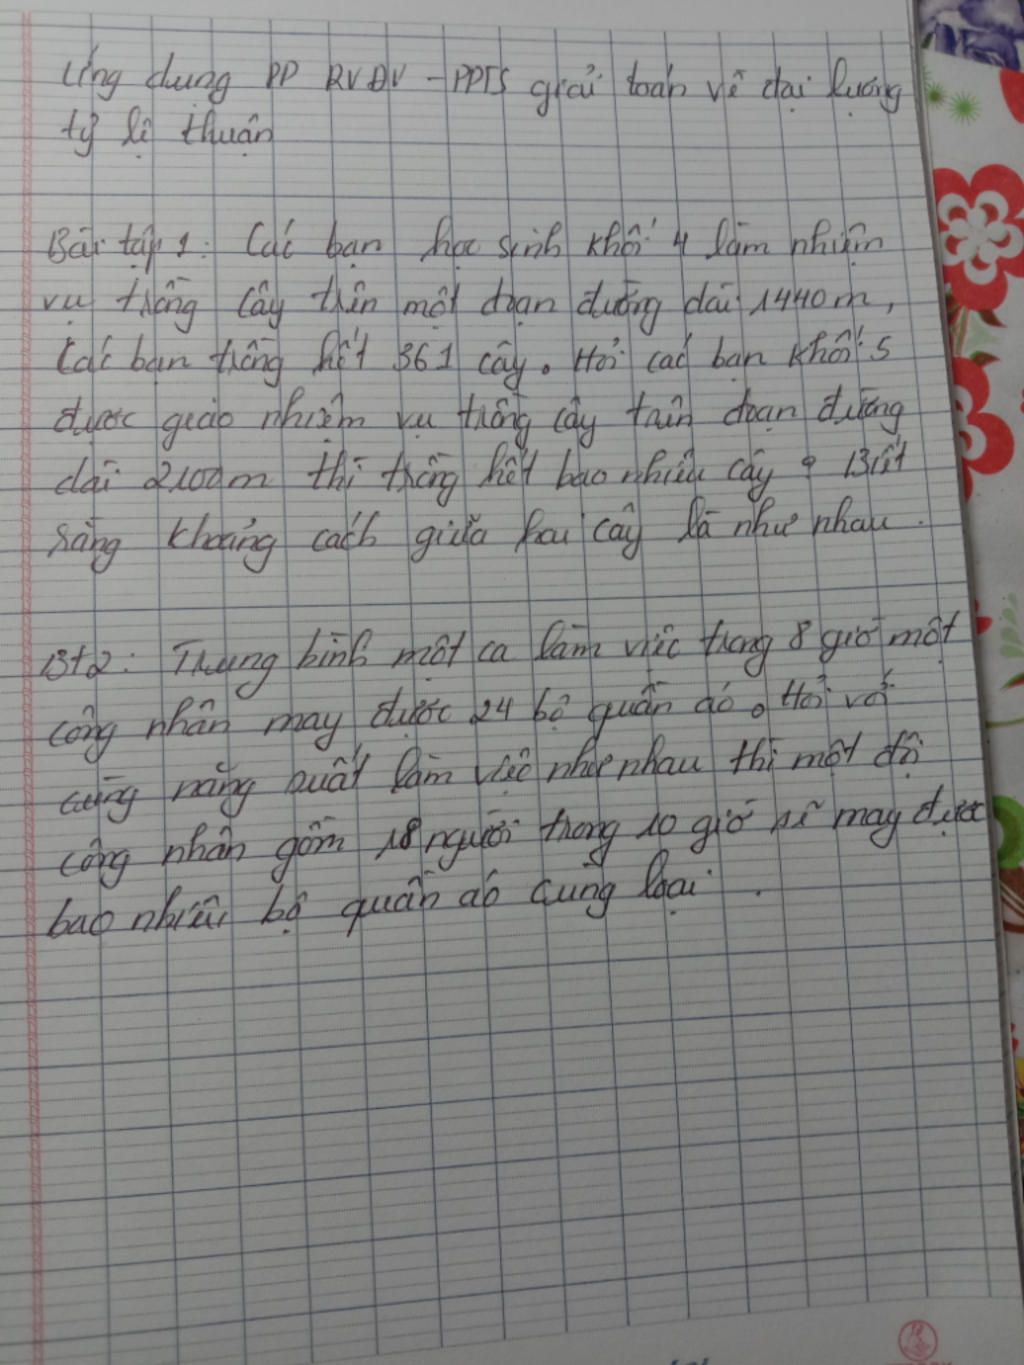 Ứng dụng PP RVĐV - PPTS giải toán về đại lượng
tỷ lệ thuận
Bài tập 1: Các bạn học sinh khối 4 làm nhiệm
vụ trồng cây trên một đoạn đường dài 1440m,
các bạn trồng hết 361 cây. Hỏi các bạn khối 5
được giao nhiệm vụ trồng cây trên đoạn đường
dài 2100m thì trồng hết bao nhiêu cây ? Biết
rằng khoảng cách giữa hai cây là như nhau.
Bt2: Trung bình một ca làm việc trong 8 giờ một
công nhân may được 24 bộ quần áo. Hỏi với
cùng năng suất làm việc như nhau thì một đội
công nhân gồm 18 người trong 10 giờ sẽ may được
bao nhiêu bộ quần áo cùng loại.